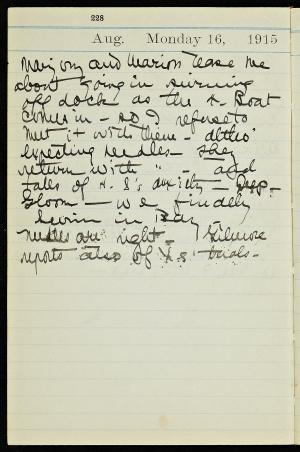 228
Aug. Monday 16, 1915
Marjory and Marion tease me
about going in swimming
off dock as the 4 Boat
comes in - so I refuse to
meet it with them - altho'
expecting needles - They
return with " - and
tales of H. S's anxiety - Deep
Gloom - we finally
swim in Bay -
Needles are right - Gilmore
reports also of H. S' trials -